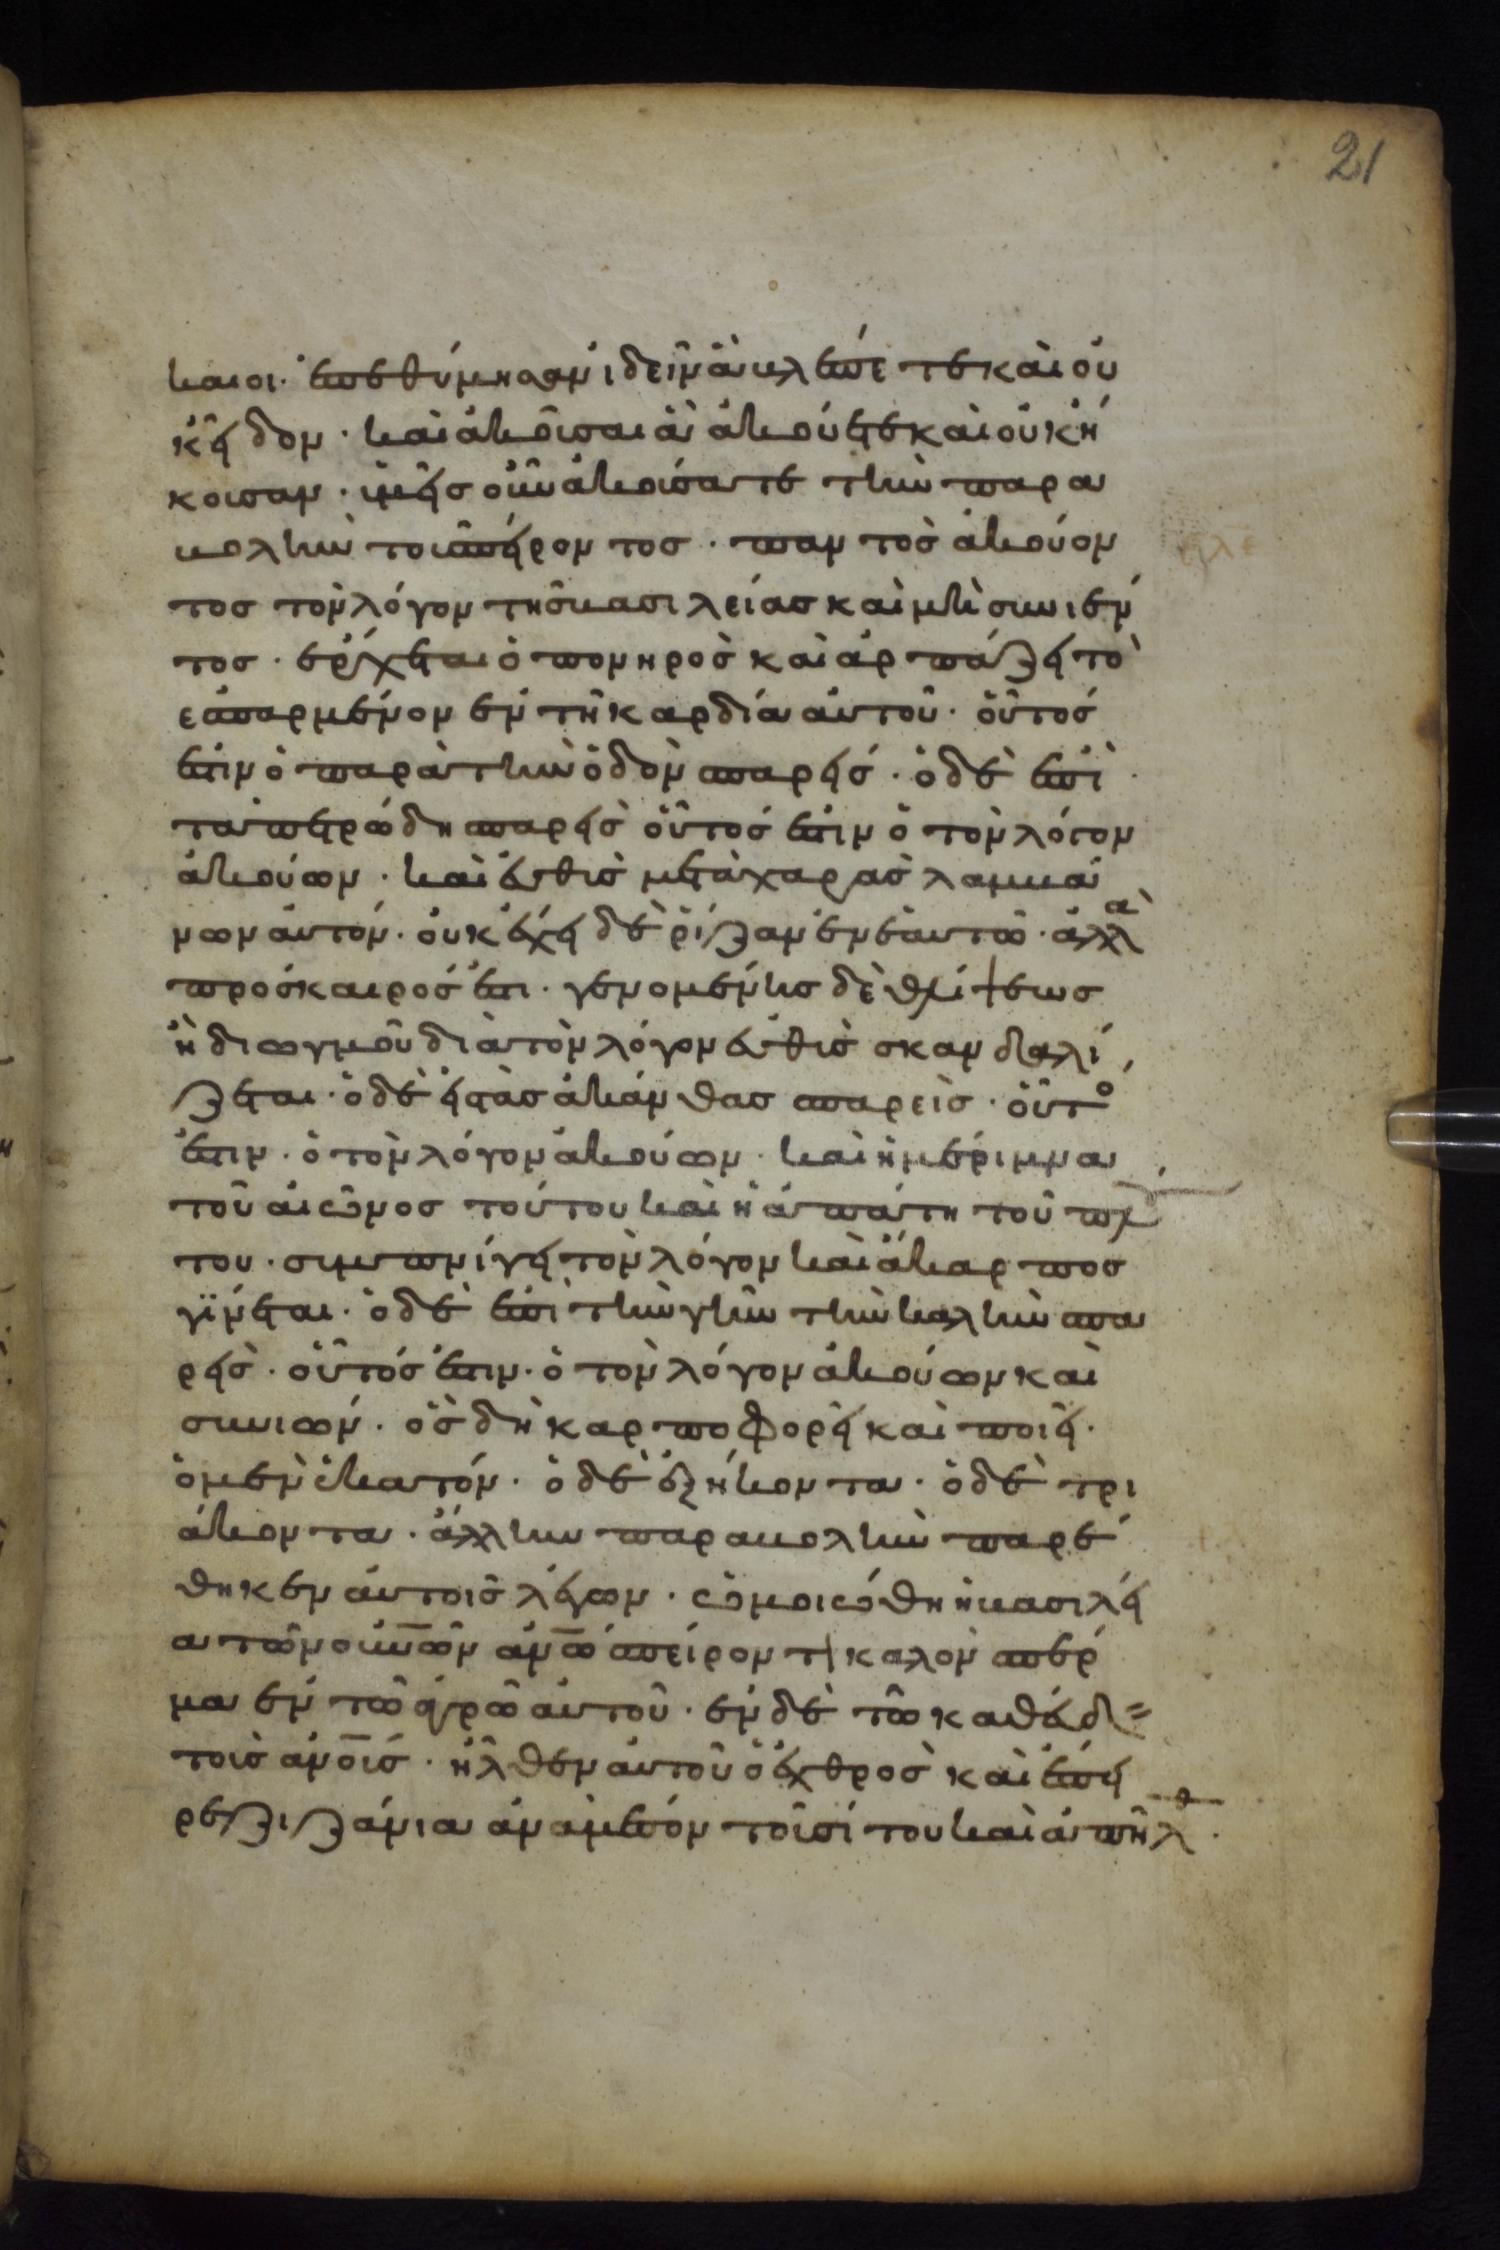 21
καιοι· ἐπεθύμησαν ἰδεῖν ἃ βλέπετε καὶ οὐ
κ εἶδον· καὶ ἀκοῦσαι ἃ ἀκούετε καὶ οὐκ ἤ
κουσαν· ὑμεῖς οὖν ἀκούσατε τὴν παρα
βολὴν τοῦ σπείροντος· παντὸς ἀκούον
τος τὸν λόγον τῆς βασιλείας καὶ μὴ συνιέν
τος· ἔρχεται ὁ πονηρὸς καὶ ἁρπάζει τὸ
ἐσπαρμένον ἐν τῇ καρδία αὐτοῦ· οὗτός
ἐστιν ὁ παρὰ τὴν ὁδὸν σπαρείς· ὁ δὲ ἐπὶ
τὰ πετρώδη σπαρεὶς οὗτός ἐστιν ὁ τὸν λόγον
ἀκούων· καὶ εὐθὺς μετὰ χαρᾶς λαμβά
νων αὐτόν· οὐκ ἔχει δὲ ῥίζαν ἐν ἑαυτῶ· ἀλλὰ
πρόσκαιρός ἐστι· γενομένης δὲ θλίψεως
ἢ διωγμοῦ διὰ τὸν λόγον εὐθὺς σκανδαλί
ζεται· ὁ δὲ εἰς τὰς ἀκάνθας σπαρείς· οὗτο
ἐστιν· ὁ τὸν λόγον ἀκούων· καὶ ἡ μέριμνα
τοῦ αἰῶνος τούτου καὶ ἡ ἀπάτη τοῦ πλού
του· συμπνίγει τὸν λόγον καὶ ἄκαρπος
γίνεται· ὁ δὲ ἐπὶ τὴν γῆν τὴν καλὴν σπα
ρείς· οὗτός ἐστιν· ὁ τὸν λόγον ἀκούων καὶ
συνιών· ὃς δὴ καρποφορεῖ καὶ ποιεῖ·
ὁ μὲν ἑκατόν· ὁ δὲ ἑξήκοντα· ὁ δὲ τρι
άκοντα· ἄλλην παραβολὴν παρέ
θηκεν αὐτοῖς λέγων· ὡμοιώθη ἡ βασιλεί
α τῶν οὐνῶν ἀνῶ σπείροντι καλὸν σπέρ
μα ἐν τῶ ἀγρῶ αὐτοῦ· ἐν δὲ τῶ καθεύδειν
τοὺς ἀνοὺς· ἦλθεν αὐτοῦ ὁ ἐχθρὸς καὶ ἔσπει
ρε ζιζάνια ἀνὰ μέσον τοῦ σίτου καὶ ἀπῆλθ·